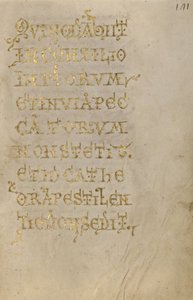 QUI NON ABIIT
IN CONSILIO
IMPIORUM
ET IN VIA PEC
CATORUM
NON STETIT
ET IN CATHE
DRA PESTILEN
TIAE NON SEDIT